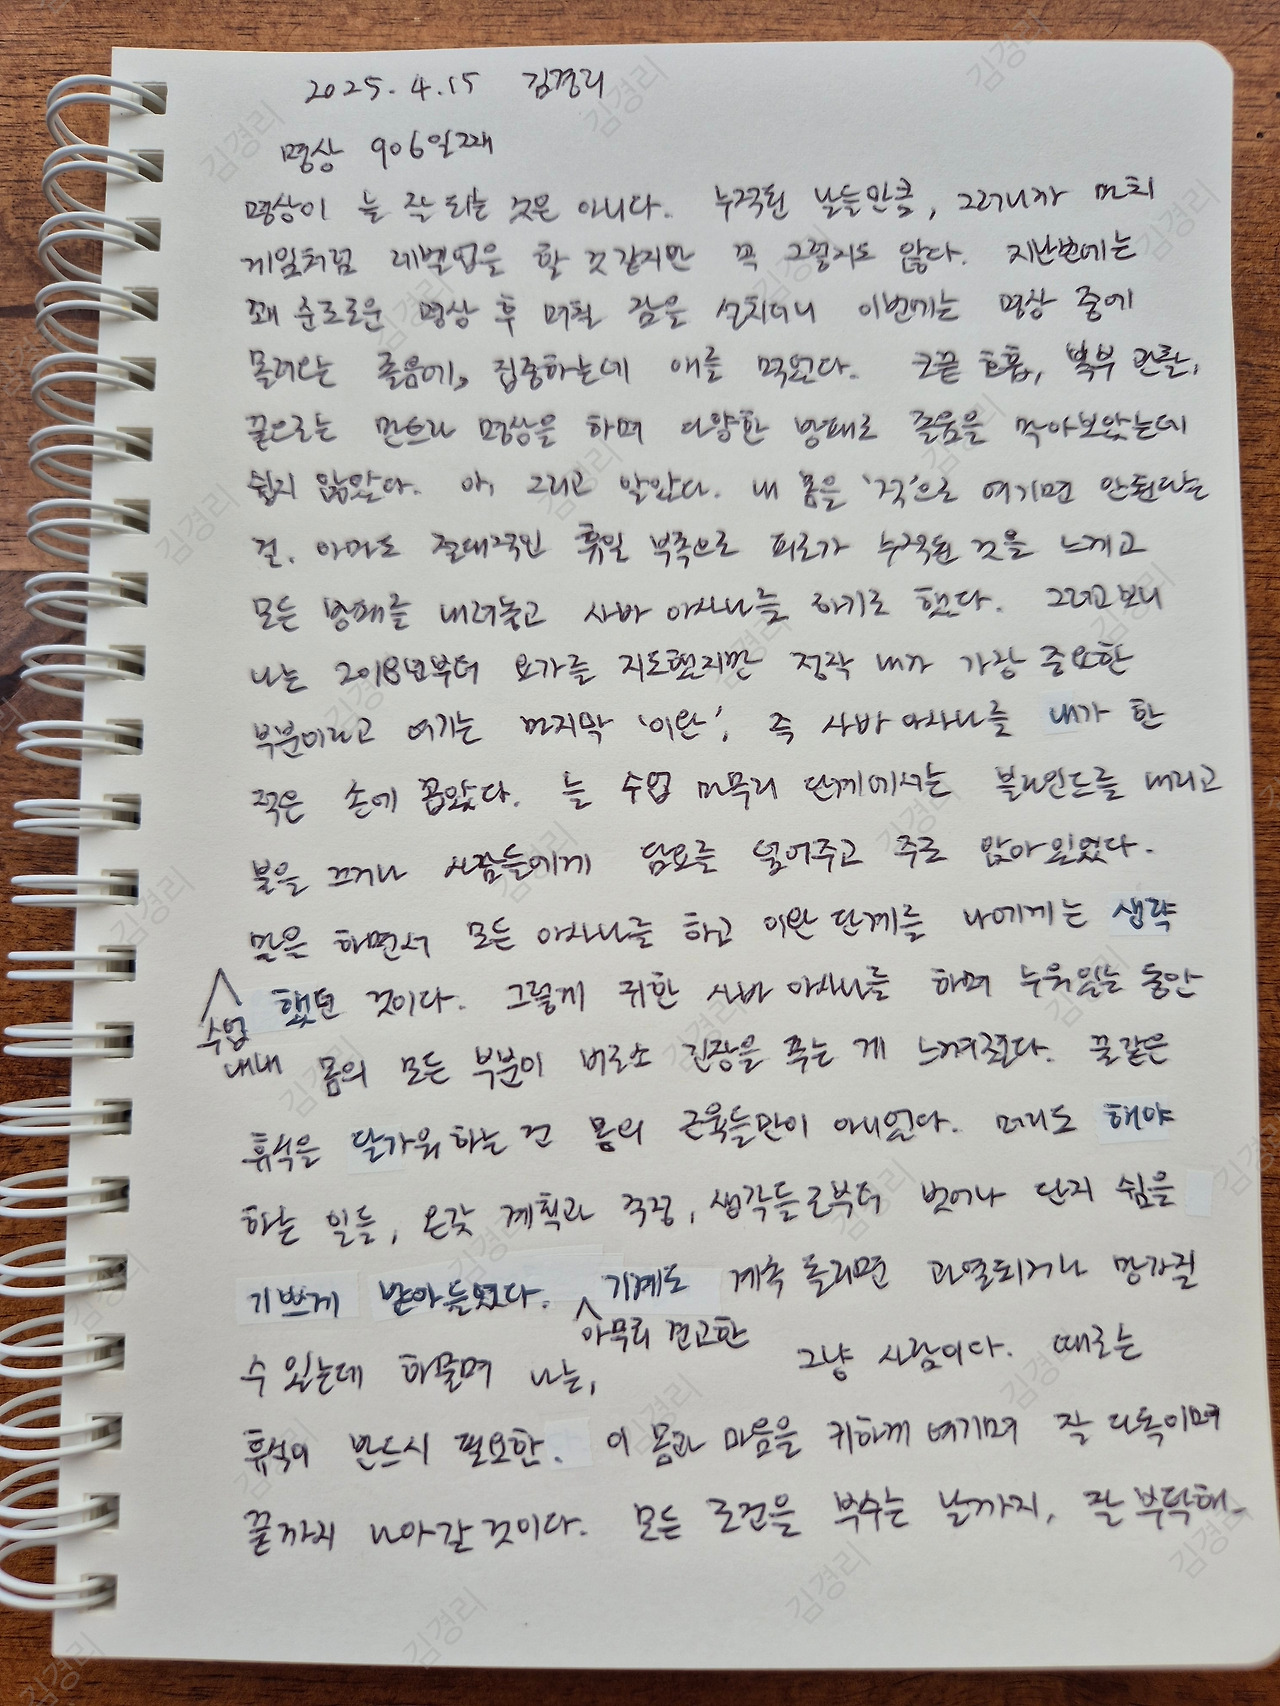 2025. 4. 15 김경리
명상 906일째
명상이 늘 잘 되는 것은 아니다. 누적된 날들만큼, 그러니까 마치
게임처럼 레벨업을 할 것 같지만 꼭 그렇지도 않다. 지난번에는
꽤 순조로운 명상 후 며칠 잠을 설치더니 이번에는 명상 중에
몰려오는 졸음에, 집중하는데 애를 먹었다. 코끝 호흡, 복부 관찰,
끝으로는 만트라 명상을 하며 다양한 방패로 졸음을 막아보았는데
쉽지 않았다. 아, 그리고 알았다. 내 몸을 '적'으로 여기면 안된다는
걸. 아마도 절대적인 휴일 부족으로 피로가 누적된 것을 느끼고
모든 방패를 내려놓고 사바 아사나를 하기로 했다. 그러고보니
나는 2018년부터 요가를 지도했지만 정작 내가 가장 중요한
부분이라고 여기는 마지막 '이완', 즉 사바 아사나를 내가 한
적은 손에 꼽았다. 늘 수업 마무리 단계에서는 블라인드를 내리고
불을 끄거나 사람들에게 담요를 덮어주고 주로 앉아있었다.
말은 하면서 모든 아사나를 하고 이완 단계를 나에게는 생략
했던 것이다. 그렇게 귀한 사바 아사나를 하며 누워있는 동안
수업
내내 몸의 모든 부분이 비로소 긴장을 푸는 게 느껴졌다. 꿀같은
휴식을 달가워하는 건 몸의 근육들만이 아니었다. 머리도 해야
하는 일들, 온갖 계획과 걱정, 생각들로부터 벗어나 단지 쉼을
기쁘게 받아들였다. 기계도 계속 돌리면 과열되거나 망가질
아무리 견고한
수 있는데 하물며 나는, 그냥 사람이다. 때로는
휴식이 반드시 필요한. 이 몸과 마음을 귀하게 여기며 잘 다독이며
끝까지 나아갈 것이다. 모든 조건을 부수는 날까지, 잘 부탁해~
김경리